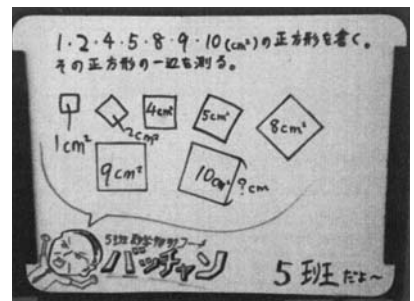 1・2・4・5・8・9・10(cm²)の正方形を書く。
その正方形の一辺を測る。
1cm²
2cm²
4cm²
5cm²
8cm²
9cm²
10cm²
?cm
5班
バッチャン
5班だよ〜